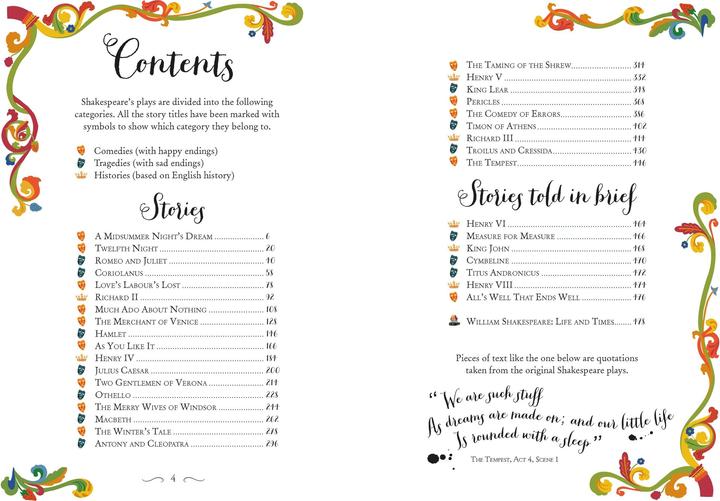 Contents
Shakespeare's plays are divided into the following
categories. All the story titles have been marked with
symbols to show which category they belong to.
Comedies (with happy endings)
Tragedies (with sad endings)
Histories (based on English history)
Stories
A Midsummer Night's Dream .................. 6
Twelfth Night .................. 20
Romeo and Juliet .................. 40
Coriolanus .................. 58
Love's Labour's Lost .................. 78
Richard II .................. 92
Much Ado About Nothing .................. 108
The Merchant of Venice .................. 128
Hamlet .................. 146
As You Like It .................. 166
Henry IV .................. 184
Julius Caesar .................. 200
Two Gentlemen of Verona .................. 214
Othello .................. 228
The Merry Wives of Windsor .................. 244
Macbeth .................. 262
The Winter's Tale .................. 278
Antony and Cleopatra .................. 296
4
The Taming of the Shrew .................. 314
Henry V .................. 332
King Lear .................. 348
Pericles .................. 368
The Comedy of Errors .................. 386
Timon of Athens .................. 402
Richard III .................. 414
Troilus and Cressida .................. 430
The Tempest .................. 446
Stories told in brief
Henry VI .................. 464
Measure for Measure .................. 466
King John .................. 468
Cymbeline .................. 470
Titus Andronicus .................. 472
Henry VIII .................. 474
All's Well That Ends Well .................. 476
William Shakespeare: Life and Times ....... 478
Pieces of text like the one below are quotations
taken from the original Shakespeare plays.
"We are such stuff
As dreams are made on; and our little life
Is rounded with a sleep"
The Tempest, Act 4, Scene 1